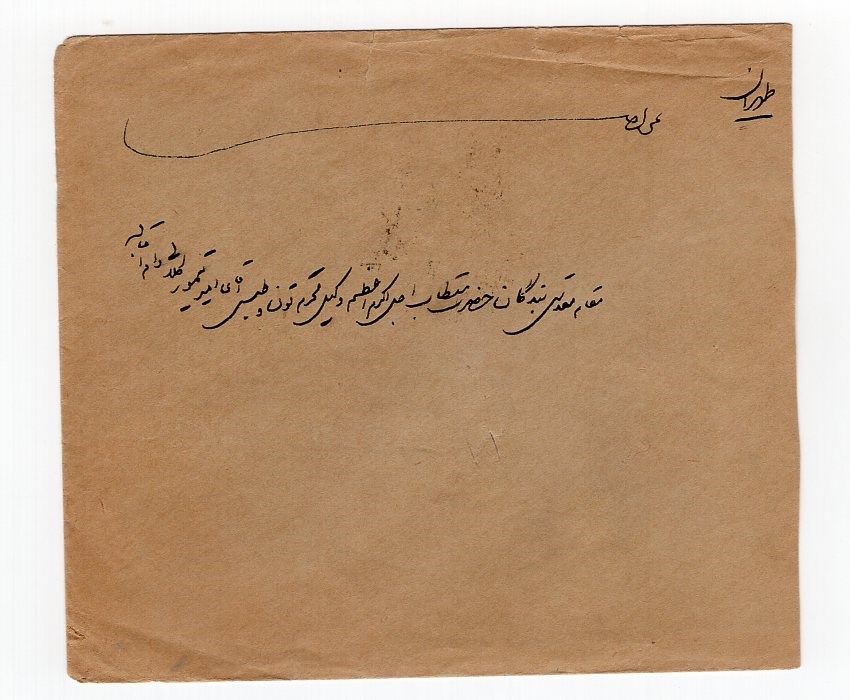 طهران
مقام مقدس بندگان حضرت مستطاب اجل اکرم اعظم وکیل محترم تون و طبس آقای امیر تیمور کلالی دام اقباله